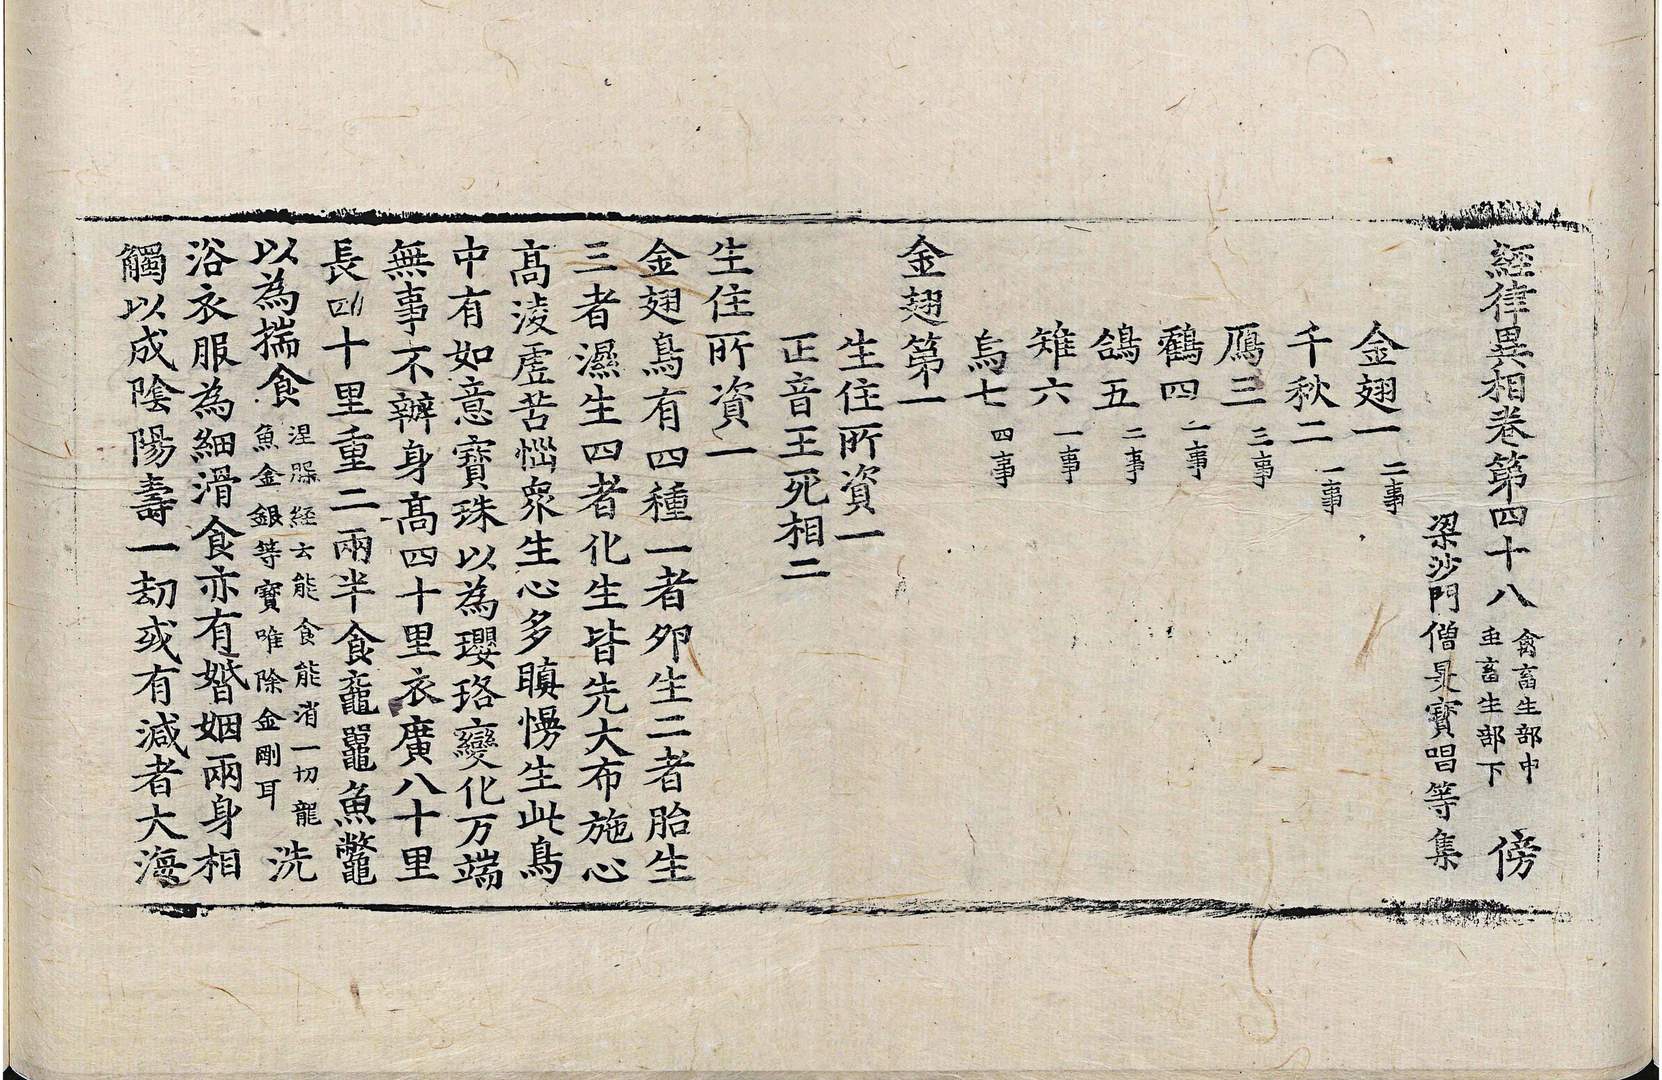 經律異相卷第四十八 禽畜生部中 䖝畜生部下 傍
梁沙門僧旻寶唱等集
金翅一 二事
千秋二 一事
鴈三 三事
鸖四 二事
鴿五 二事
雉六 一事
烏七 四事
金翅第一
生住所資一
正音王死相二
生住所資一
金翅鳥有四種一者夘生二者胎生
三者濕生四者化生皆先大布施心
高淩虛苦惱衆生心多瞋慢生此鳥
中有如意寶珠以為瓔珞變化万端
無事不辦身高四十里衣廣八十里
長四十里重二兩半食黿鼉魚鼈
以為揣食 涅槃經云能食能消一切龍 魚金銀等寶唯除金剛耳 洗
浴衣服為細滑食亦有婚姻兩身相
觸以成陰陽壽一劫或有減者大海